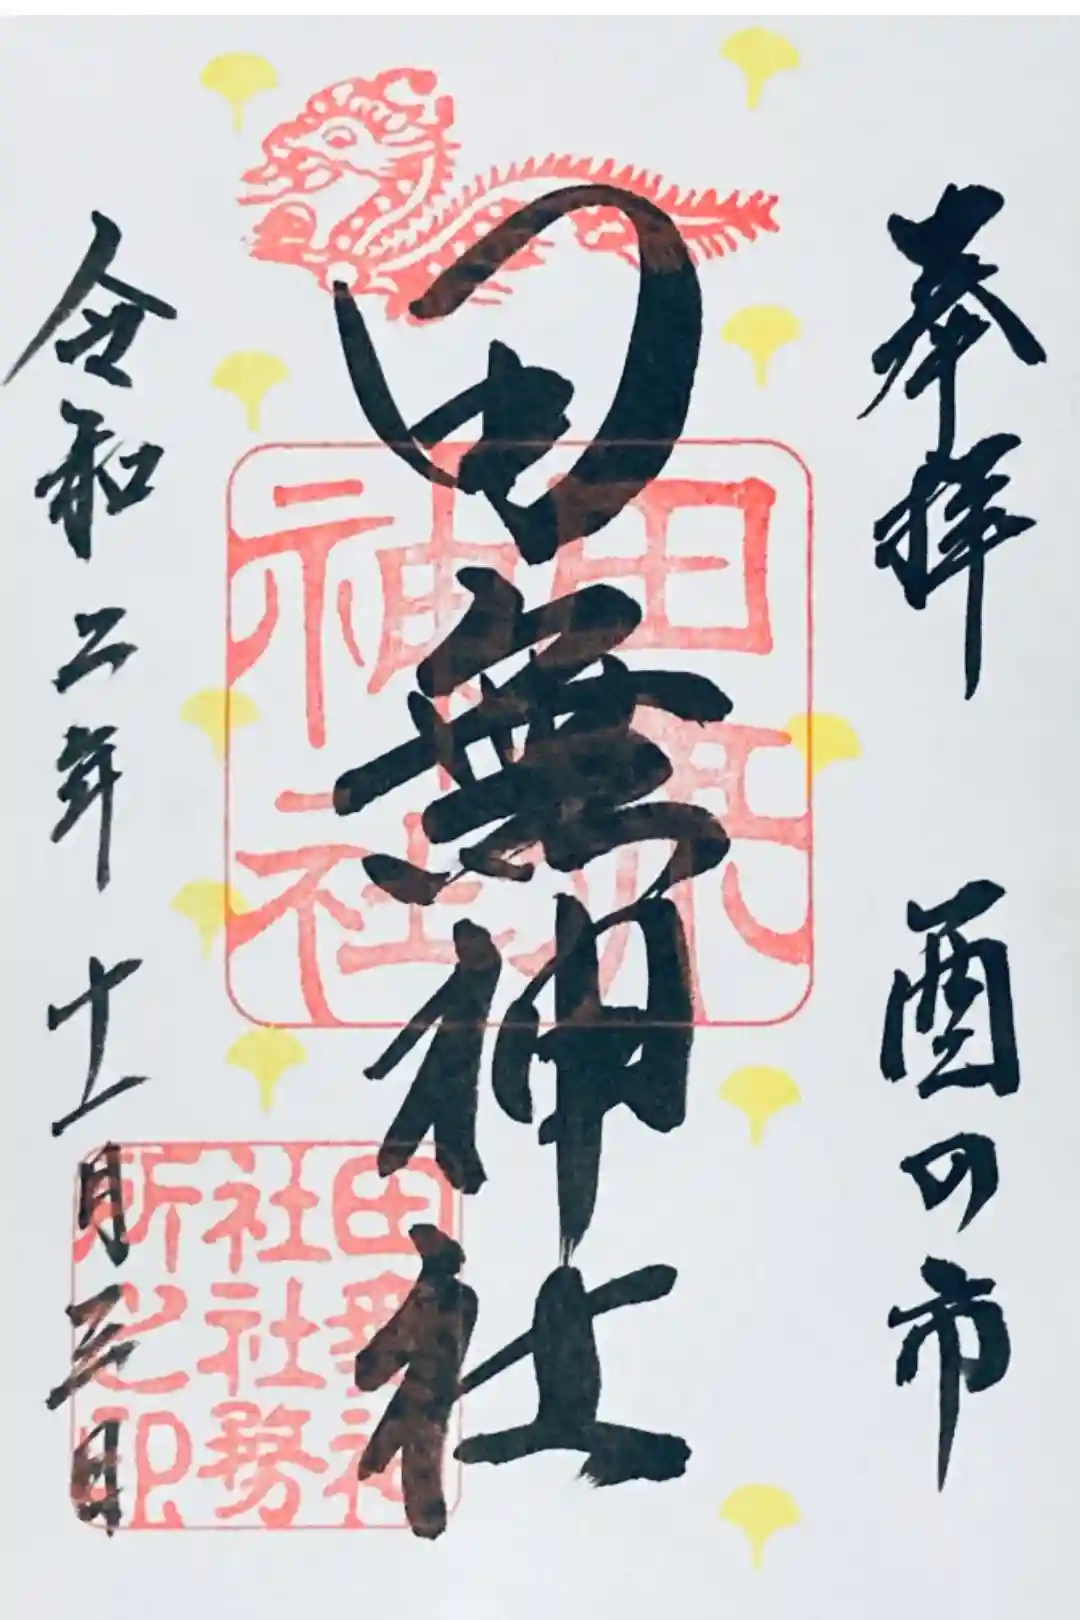 奉拝　酉の市
田無神社
令和二年　十一月三日
田無
神社
田無神
社社務
所之印